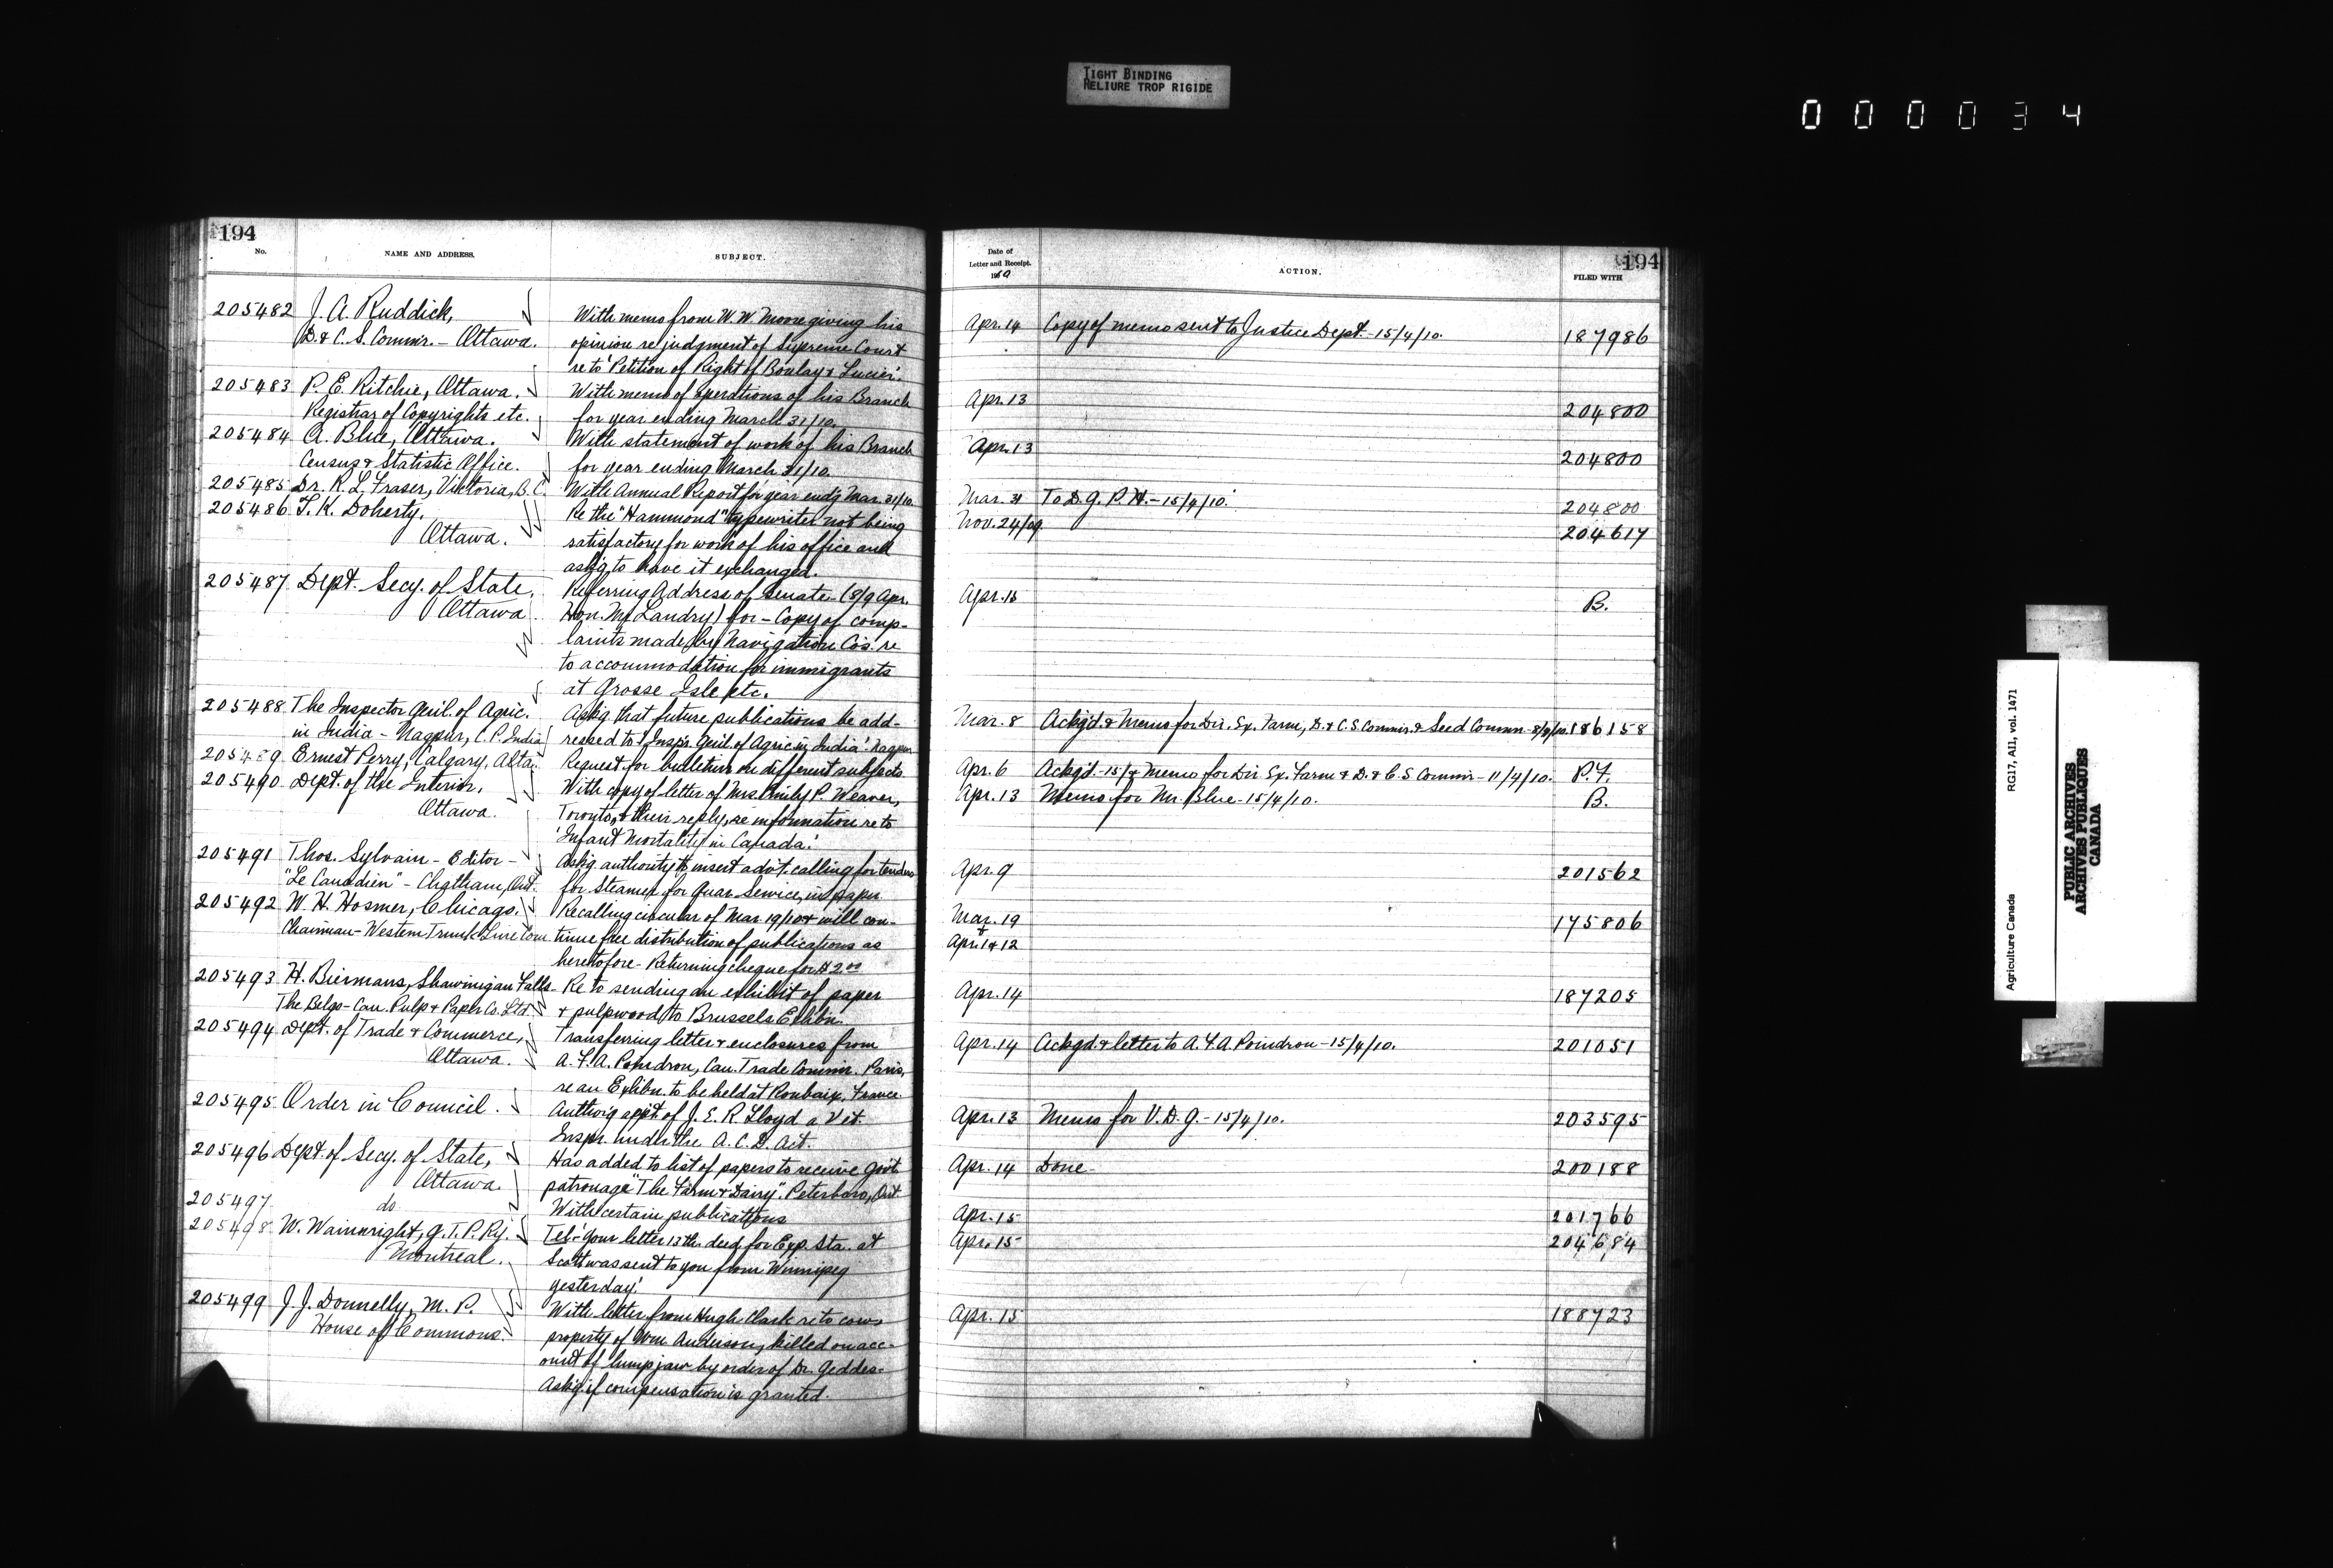 TIGHT BINDING
RELIURE TROP RIGIDE
0 0 0 0 3 4
194
No. NAME AND ADDRESS. SUBJECT.
205482 J. A. Ruddick, With memo from W. W. Moore giving his
D. & C. S. Commr. - Ottawa. opinion re judgment of Supreme Court
re to 'Petition of Right of Boulay & Lucier.'
205483 P. E. Ritchie, Ottawa. With memo of operations of his Branch
Registrar of Copyrights etc. for year ending March 31/10.
205484 A. Blue, Ottawa. With statement of work of his Branch
Census & Statistic Office. for year ending March 31/10.
205485 Dr. R. L. Fraser, Viktoria, B.C. With Annual Report for year end'g Mar. 31/10.
205486 T. K. Doherty. Re the "Hammond" typewriter not being
Ottawa. satisfactory for work of his office and
ask'g to have it exchanged.
205487 Dept. Secy. of State, Referring Address of Senate - (8/9 Apr.
Ottawa Hon. Mr. Landry) for - Copy of comp-
laints made by Navigation Cos. re
to accommodation for immigrants
at Grosse Isle etc.
205488 The Inspector Genl. of Agric. Ask'g that future publications be add-
in India - Nagpur, C. P. India ressed to 'Inspr. Genl. of Agric. in India'. Nagpur
205489 Ernest Perry, Calgary, Alta. Request for bulletins on different subjects
205490 Dept. of the Interior, With copy of letter of Mrs. Emily P. Weaver,
Ottawa. Toronto, & their reply, re information re to
'Infant Mortality in Canada.'
205491 Thos. Sylvain - Editor - Ask'g authority to insert adv't. calling for tenders
"Le Canadien" - Chatham, Ont. for Steamer for Quar. Service, in paper.
205492 W. H. Hosmer, Chicago. Recalling circular of Mar. 19/10 & will con-
Chairman - Western Trunk Line Com. tinue free distribution of publications as
heretofore - Returning cheque for $2.00
205493 H. Biermans, Shawinigan Falls. Re to sending an exhibit of paper
The Belgo-Can. Pulp & Paper Co. Ltd. & pulpwood to Brussels Exhbn.
205494 Dept. of Trade & Commerce, Transferring letter & enclosures from
Ottawa. A. F. A. Poindron, Can. Trade Commr. Paris,
re an Exhbn. to be held at Roubaix, France
205495 Order in Council. Auth'ing appt. of J. E. R. Lloyd a Vet.
Inspr. under the A. C. D. Act.
205496 Dept. of Secy. of State, Has added to list of papers to receive Gov't
Ottawa. patronage "The Farm & Dairy". Peterboro, Ont
205497 do With certain publications
205498 W. Wainwright, G. T. P. Ry. Tel - 'Your letter 13th. deed for Exp. Sta. at
Montreal. Scott was sent to you from Winnipeg
yesterday.'
205499 J. J. Donnelly, M. P. With letter from Hugh Clark re to cows
House of Commons. property of Wm. Anderson, killed on acc-
ount of lump jaw by order of Dr. Geddes -
Ask'g if compensation is granted.
194
Date of
Letter and Receipt.
1910
ACTION. FILED WITH
Apr. 14 Copy of memo sent to Justice Dept. - 15/4/10. 187986
Apr. 13 204800
Apr. 13 204800
Mar. 31 To D. G. P. H. - 15/4/10. 204800
Nov. 24/09 204617
Apr. 15 B.
Mar. 8 Ackg'd. & Memo for Dir. Ex. Farm, D. & C. S. Commr. & Seed Commr. 186158
Apr. 6 Ackg'd. - 15/4 Memo for Dir. Ex. Farm & D. & C. S Commr - 11/4/10. P. F.
Apr. 13 Memo for Mr. Blue - 15/4/10. B.
Apr. 9 201562
Mar. 19 175806
+
Apr. 1 & 12
Apr. 14 187205
Apr. 14 Ackgd. & letter to A. F. A. Poindron - 15/4/10. 201051
Apr. 13 Memo for V. D. G. - 15/4/10. 203595
Apr. 14 Done - 200188
Apr. 15 201766
Apr. 15 204684
Apr. 15 188723
Agriculture Canada RG17, AII, vol. 1471
PUBLIC ARCHIVES
ARCHIVES PUBLIQUES
CANADA